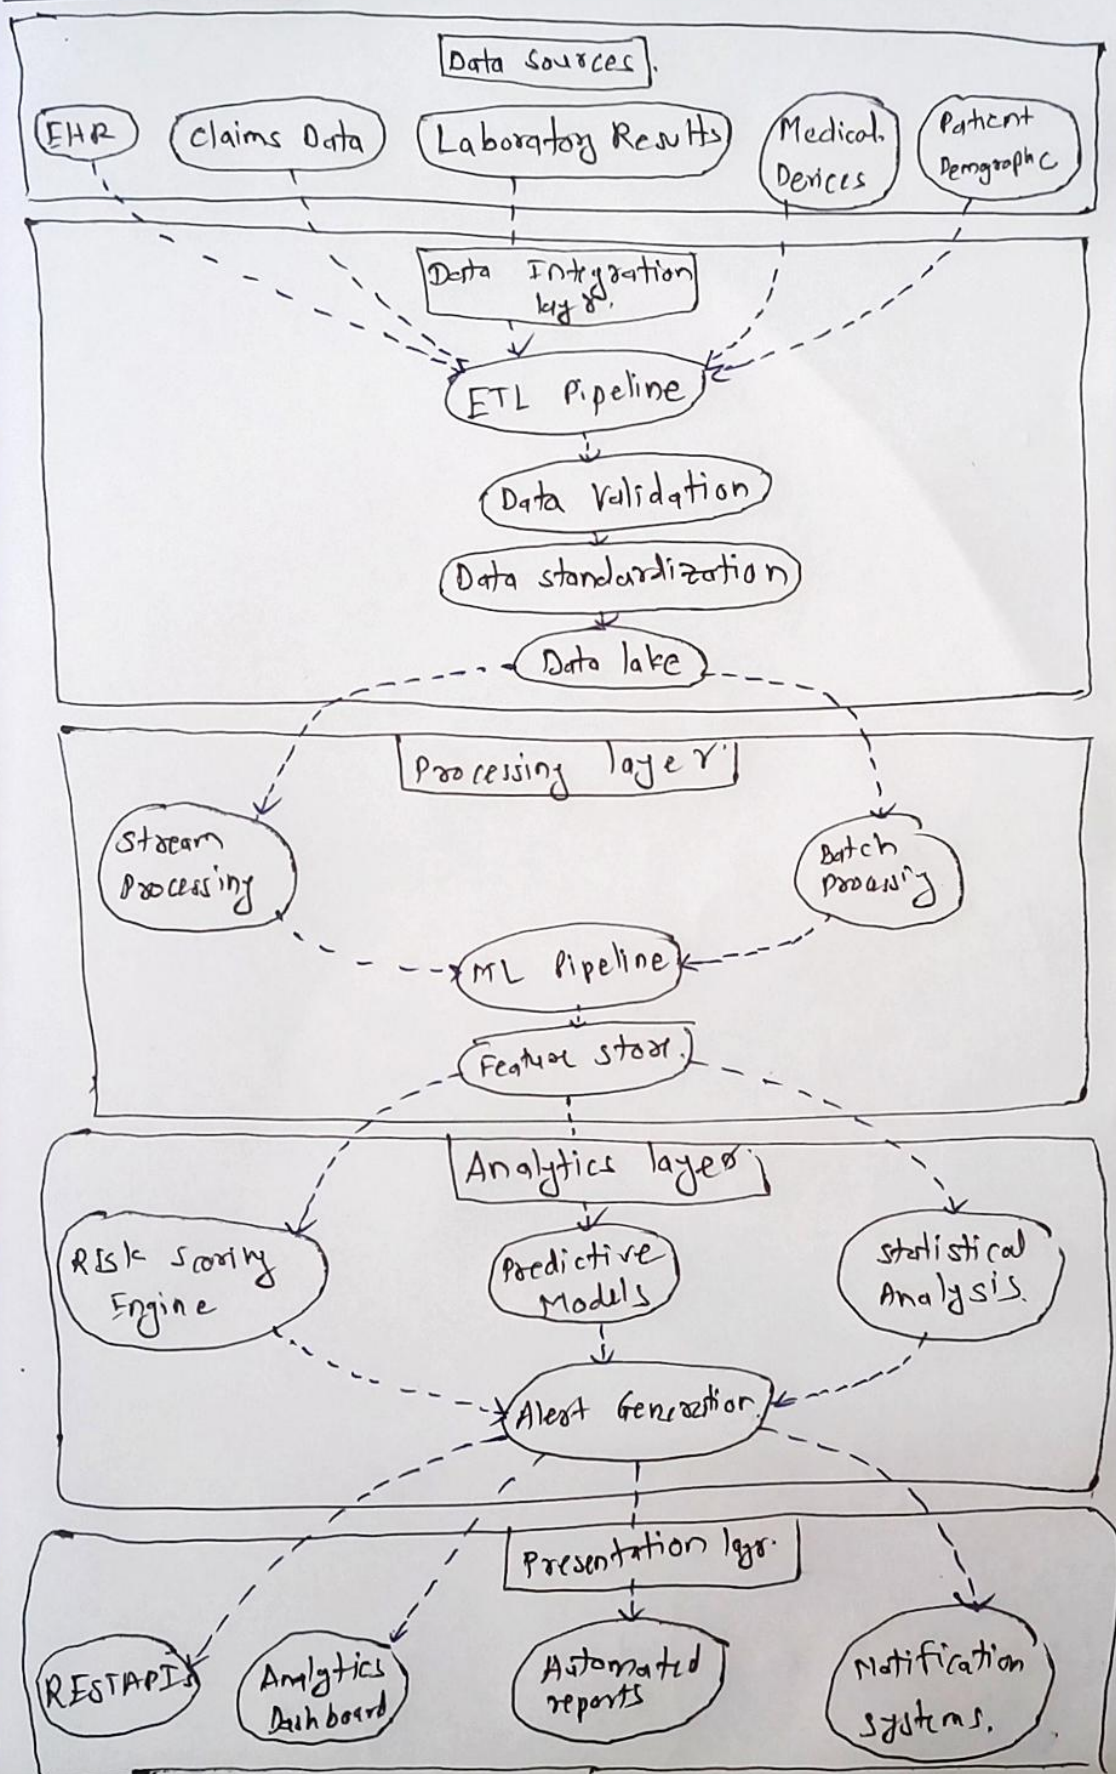 Data Sources.
EHR
Claims Data
Laboratory Results
Medical
Devices
Patient
Demgraphic
Data Integration
layr.
ETL Pipeline
Data Validation
Data standardization
Data lake
Processing layer
Stream
Processing
Batch
Procssing
ML Pipeline
Feature store.
Analytics layer
Risk Scoring
Engine
Predictive
Models
Statistical
Analysis.
Alert Generation.
Presentation layr.
RESTAPIs
Analytics
Dashboard
Automated
reports
Notification
systems.